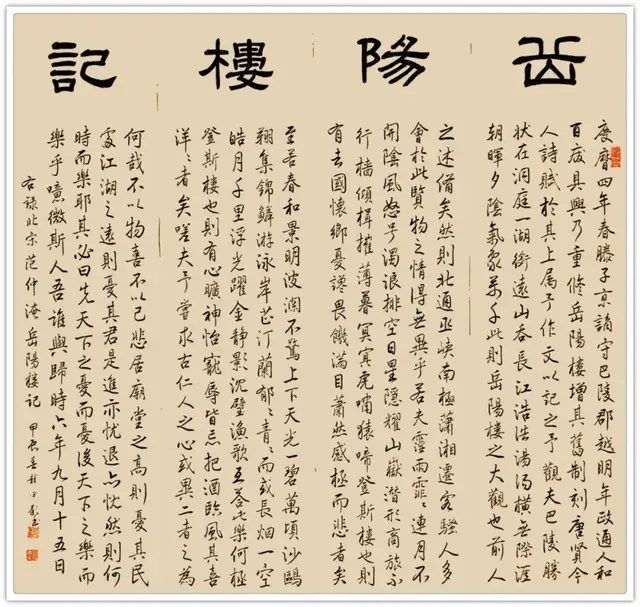 岳陽樓記
慶曆四年春滕子京謫守巴陵郡越明年政通人和
百廢具興乃重修岳陽樓增其舊制刻唐賢今
人詩賦於其上屬予作文以記之予觀夫巴陵勝
狀在洞庭一湖銜遠山吞長江浩浩湯湯橫無際涯
朝暉夕陰氣象萬千此則岳陽樓之大觀也前人
之述備矣然則北通巫峽南極瀟湘遷客騷人多
會於此覽物之情得無異乎若夫霪雨霏々連月不
開陰風怒號濁浪排空日星隱耀山嶽潛形商旅不
行檣傾楫摧薄暮冥冥虎嘯猿啼登斯樓也則
有去國懷鄉憂讒畏譏滿目蕭然感極而悲者矣
至若春和景明波瀾不驚上下天光一碧萬頃沙鷗
翔集錦鱗游泳岸芷汀蘭郁々青々而或長烟一空
皓月千里浮光躍金靜影沉璧漁歌互答此樂何極
登斯樓也則有心曠神怡寵辱皆忘把酒臨風其喜
洋々者矣嗟夫予嘗求古仁人之心或異二者之為
何哉不以物喜不以己悲居廟堂之高則憂其民
處江湖之遠則憂其君是進亦憂退亦憂然則何
時而樂耶其必曰先天下之憂而憂後天下之樂而
樂乎噫微斯人吾誰與歸時六年九月十五日
右錄北宋范仲淹岳陽樓記 甲辰